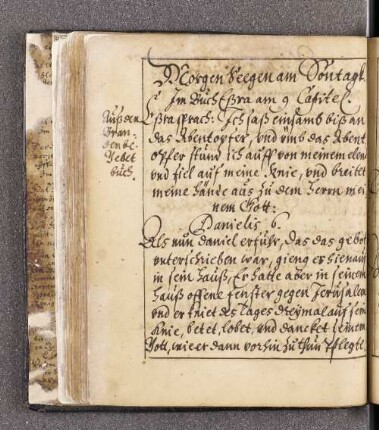 Morgen Seegen am Sontagk.
Im Buch Eßra am 9 Capitel.
Auß dem
Bran-
denb.
Gebet
buch.
Eßra sprach: Ich saß einsamb biß an
das Abentopfer, und umb das Abent
opffer stund ich auff von meinem elend
und fiel auf meine Knie, und breitet
meine Hände aus zu dem Herrn mei
nem Gott:
Danielis 6.
Als nun Daniel erfuhr, das das gebot
unterschrieben war, gieng er hienauf
in sein Hauß, Er hatte aber in seinem
Hauß offene fenster gegen Jerusalem
und er kniet des tages dreymal auf sein
Knie, betet, lobet, und dancket seinem
Gott, wie er dann vorhin zuthun pflegte.